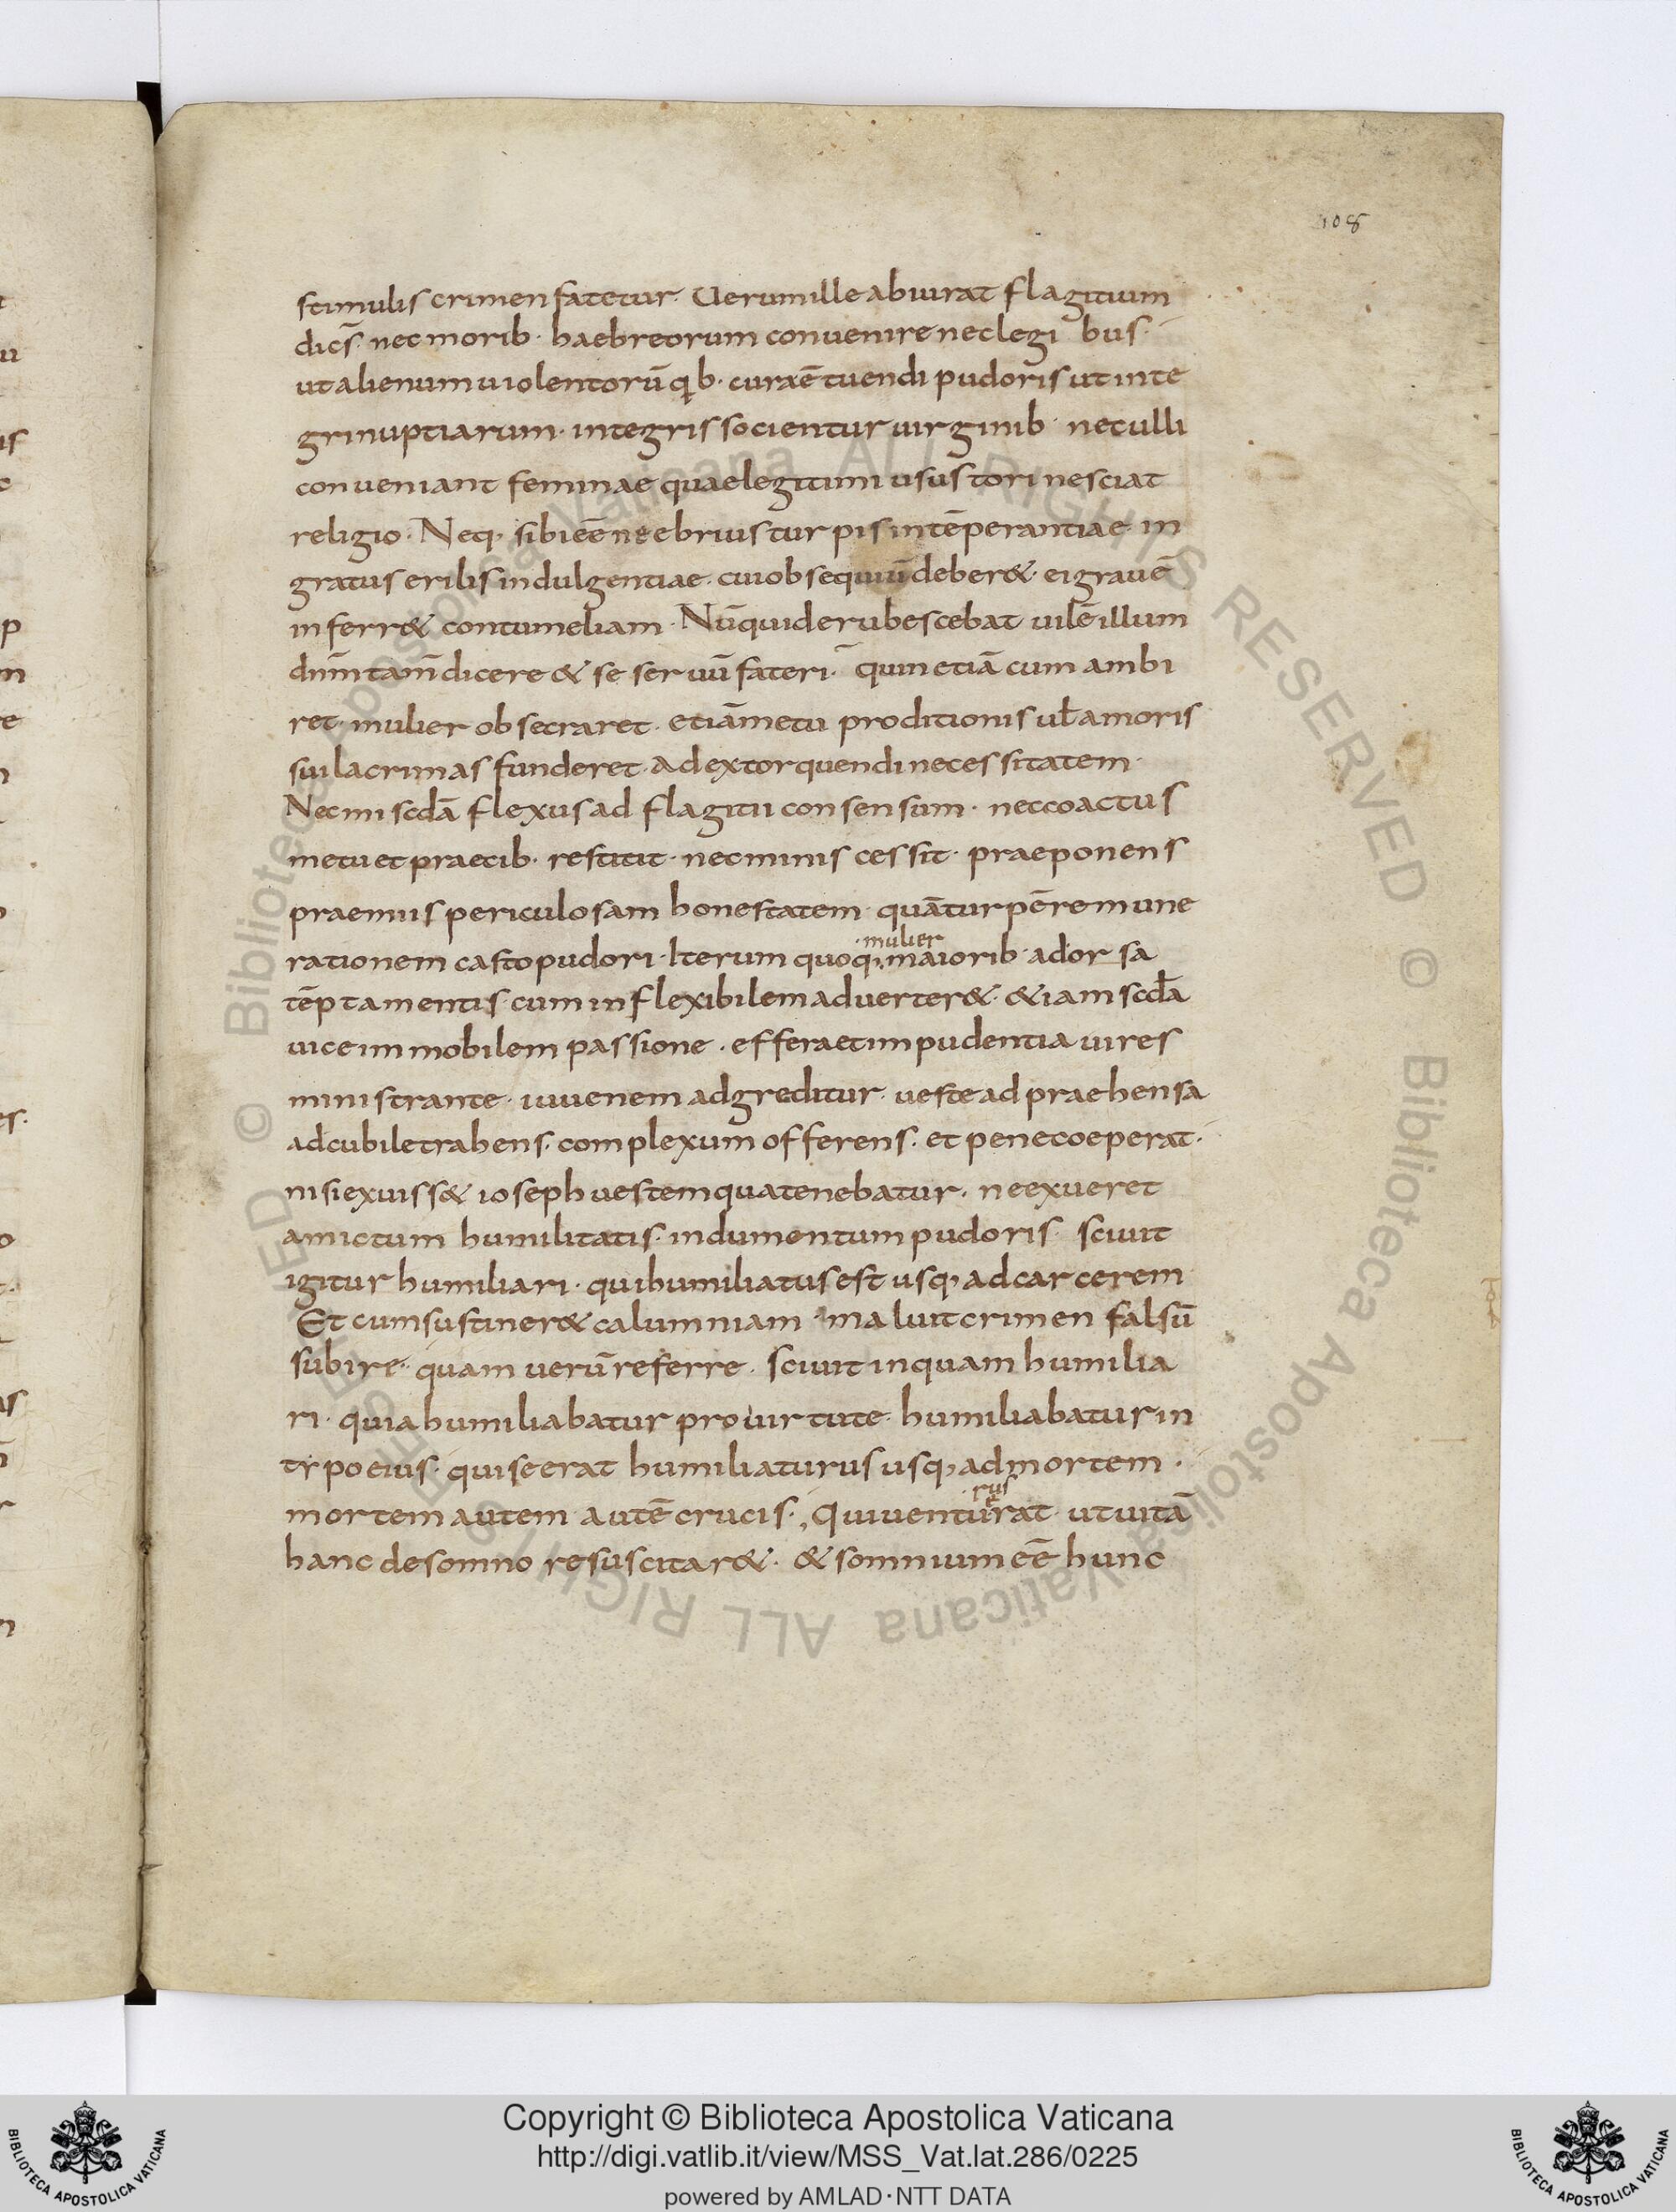 108
stimulis crimen fatetur. Uerum ille abiurat flagitium
dics̄ nec morib· haebreorum conuenire nec legi bus·
ut alienum uiolentorū qib· cura ē tuendi pudoris ut inte
gri nuptiarum· integris socientur uirginib· nec ulli
conueniant feminae quae legitimi usus tori nesciat
religio· Neq· sibi eē ne ebrius turpis intēperantiae in
gratus erilis indulgentiae· cui obsequiū deber&· ei grauē
inferr& contumeliam· Nūquid erubescebat uilē illum
dnm̄ tam̄ dicere & se seruū fateri· quin etiā cum ambi
ret· mulier obsecraret· etiā metu proditionis uł amoris
sui lacrimas funderet· ad extorquendi necessitatem·
Nec miscd̄a flexus ad flagitii consensum· nec coactus
metu et praecib· restitit· nec minis cessit· praeponens
praemiis periculosam honestatem· quā turpē remune
rationem casto pudori· Iterum quoq, maiorib· adorsa
·mulier
tēptamentis· cum inflexibilem aduerter&· & iam scd̄a
uice immobilem passione· effera et impudentia uires
ministrante· iuuenem adgreditur· ueste adpraehensa
ad cubile trahens· complexum offerens· et pene coeperat·
nisi exuiss& ioseph uestem qua tenebatur· ne exueret
amictum humilitatis· indumentum pudoris· sciuit
igitur humiliari· qui humiliatus est usq, ad carcerem
Et cum sustiner& calumniam· maluit crimen falsū
subire· quam uerū referre· sciuit inquam humilia
ri· quia humiliabatur pro uirtute· humiliabatur in
typo eius· qui se erat humiliaturus usq, ad mortem·
mortem autem autē crucis·, Qui uenturat· ut uitā
rus
e
hanc de somno resuscitar&· & somnium eē hunc
Copyright © Biblioteca Apostolica Vaticana
http://digi.vatlib.it/view/MSS_Vat.lat.286/0225
powered by AMLAD·NTT DATA
BIBLIOTECA APOSTOLICA VATICANA
BIBLIOTECA APOSTOLICA VATICANA
© Biblioteca Apostolica Vaticana ALL RIGHTS RESERVED © Biblioteca Apostolica Vaticana ALL RIGH